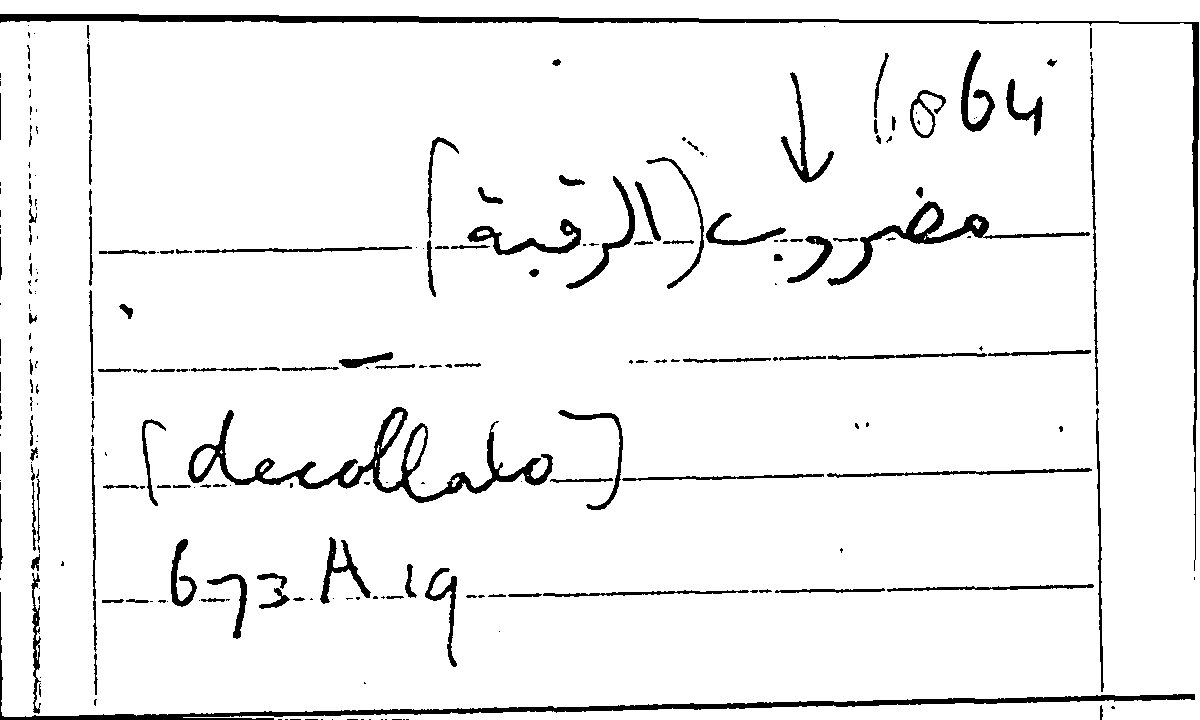 مضروب (الرقبة)
[decollato]
673 A 19